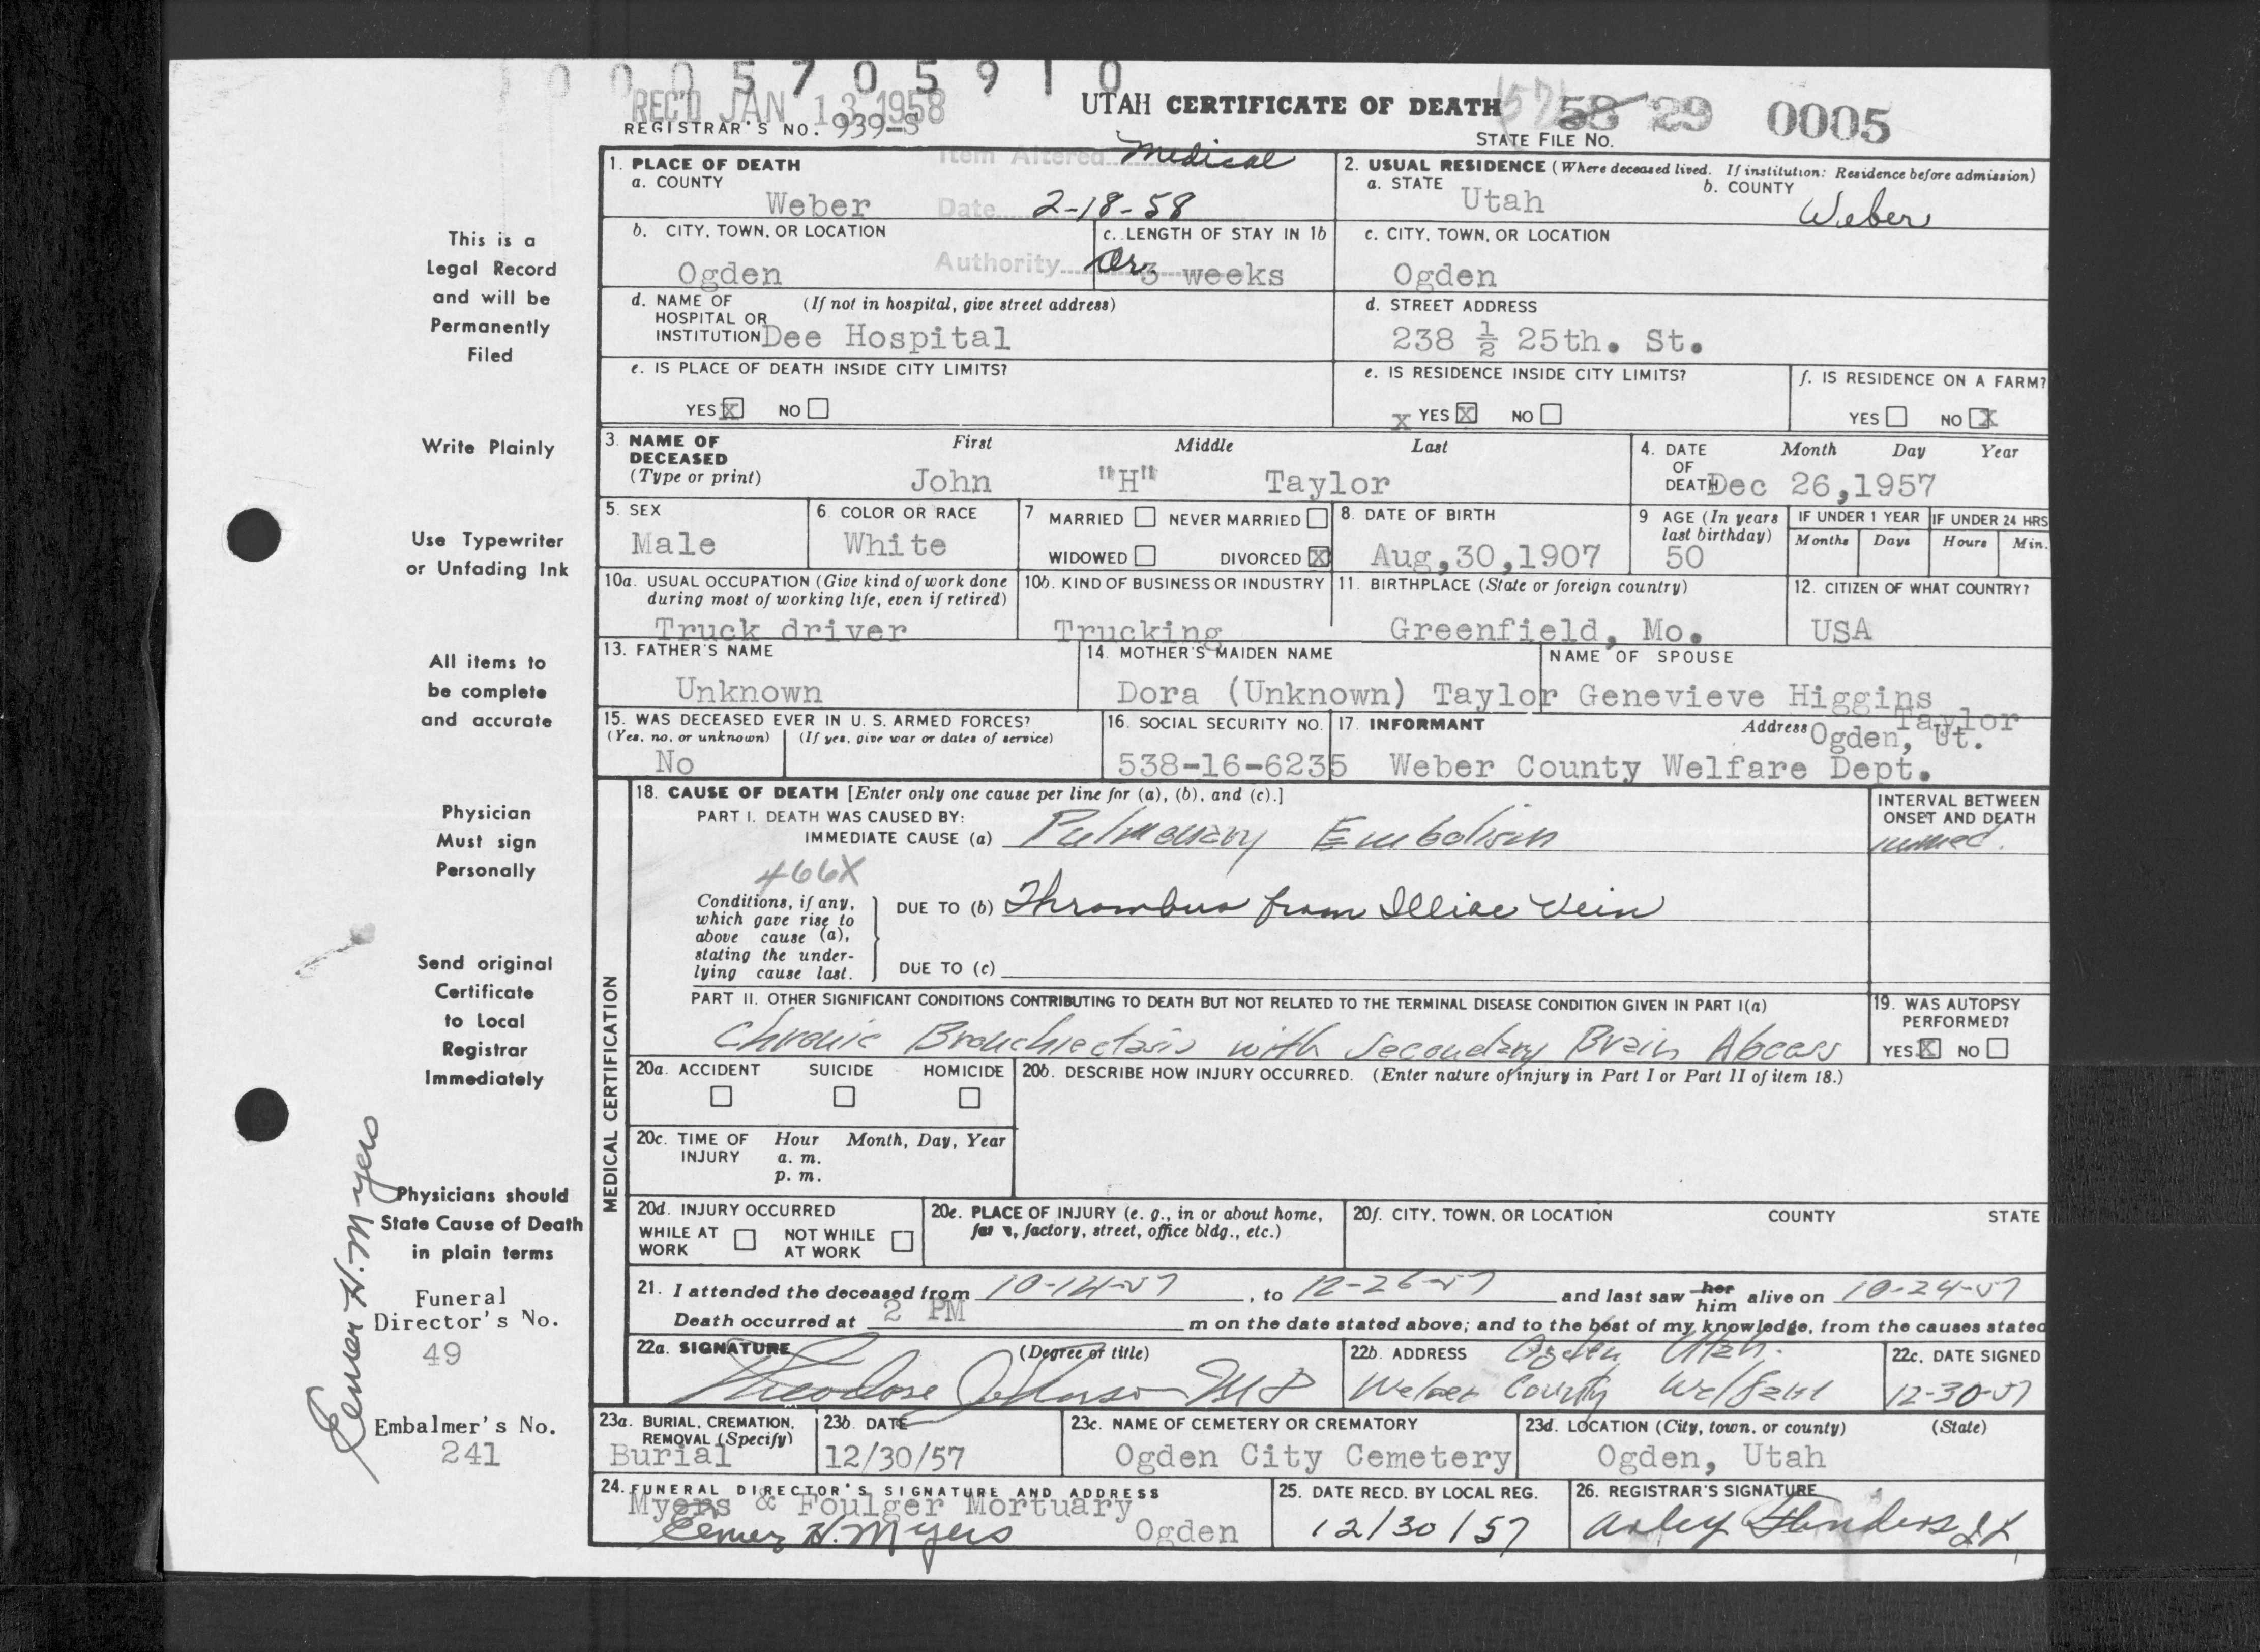 0005705910
REC'D JAN 13 1958
UTAH CERTIFICATE OF DEATH
(57) 58 29 0005
REGISTRAR'S NO. 939-S
STATE FILE NO.
Item Altered Medical
Date 2-18-58
Authority Dr.
1. PLACE OF DEATH
a. COUNTY
Weber
2. USUAL RESIDENCE (Where deceased lived. If institution: Residence before admission)
a. STATE
Utah
b. COUNTY
Weber
b. CITY, TOWN, OR LOCATION
Ogden
c. LENGTH OF STAY IN 1b
3 weeks
c. CITY, TOWN, OR LOCATION
Ogden
d. NAME OF HOSPITAL OR INSTITUTION (If not in hospital, give street address)
Dee Hospital
d. STREET ADDRESS
238 ½ 25th. St.
e. IS PLACE OF DEATH INSIDE CITY LIMITS?
YES X NO
e. IS RESIDENCE INSIDE CITY LIMITS?
X YES X NO
f. IS RESIDENCE ON A FARM?
YES NO X
3. NAME OF DECEASED (Type or print)
First Middle Last
John "H" Taylor
4. DATE OF DEATH
Month Day Year
Dec 26,1957
5. SEX
Male
6. COLOR OR RACE
White
7 MARRIED NEVER MARRIED
WIDOWED DIVORCED X
8. DATE OF BIRTH
Aug,30,1907
9 AGE (In years last birthday)
50
IF UNDER 1 YEAR
Months Days
IF UNDER 24 HRS
Hours Min.
10a. USUAL OCCUPATION (Give kind of work done during most of working life, even if retired)
Truck driver
10b. KIND OF BUSINESS OR INDUSTRY
Trucking
11. BIRTHPLACE (State or foreign country)
Greenfield, Mo.
12. CITIZEN OF WHAT COUNTRY?
USA
13. FATHER'S NAME
Unknown
14. MOTHER'S MAIDEN NAME
Dora (Unknown) Taylor
NAME OF SPOUSE
Genevieve Higgins Taylor
15. WAS DECEASED EVER IN U. S. ARMED FORCES?
(Yes, no, or unknown) (If yes, give war or dates of service)
No
16. SOCIAL SECURITY NO.
538-16-6235
17. INFORMANT
Weber County Welfare Dept.
Address
Ogden, Ut.
MEDICAL CERTIFICATION
18. CAUSE OF DEATH [Enter only one cause per line for (a), (b), and (c).]
PART I. DEATH WAS CAUSED BY:
IMMEDIATE CAUSE (a) Pulmonary Embolism
INTERVAL BETWEEN ONSET AND DEATH
immed.
466X
Conditions, if any, which gave rise to above cause (a), stating the underlying cause last.
DUE TO (b) Thrombus from Illiac Vein
DUE TO (c)
PART II. OTHER SIGNIFICANT CONDITIONS CONTRIBUTING TO DEATH BUT NOT RELATED TO THE TERMINAL DISEASE CONDITION GIVEN IN PART I(a)
Chronic Bronchiectasis with Secondary Brain Abcess
19. WAS AUTOPSY PERFORMED?
YES X NO
20a. ACCIDENT SUICIDE HOMICIDE
20b. DESCRIBE HOW INJURY OCCURRED. (Enter nature of injury in Part I or Part II of item 18.)
20c. TIME OF INJURY
Hour Month, Day, Year
a. m.
p. m.
20d. INJURY OCCURRED
WHILE AT WORK NOT WHILE AT WORK
20e. PLACE OF INJURY (e. g., in or about home, farm, factory, street, office bldg., etc.)
20f. CITY, TOWN, OR LOCATION COUNTY STATE
21. I attended the deceased from 10-14-57, to 12-26-57 and last saw her him alive on 10-24-57
Death occurred at 2 PM m on the date stated above; and to the best of my knowledge, from the causes stated
22a. SIGNATURE (Degree or title)
Theodore Johnson MD
22b. ADDRESS
Ogden Utah.
Weber County Welfare
22c. DATE SIGNED
12-30-57
23a. BURIAL, CREMATION, REMOVAL (Specify)
Burial
23b. DATE
12/30/57
23c. NAME OF CEMETERY OR CREMATORY
Ogden City Cemetery
23d. LOCATION (City, town, or county) (State)
Ogden, Utah
24. FUNERAL DIRECTOR'S SIGNATURE AND ADDRESS
Myers & Foulger Mortuary
Elmer H. Myers Ogden
25. DATE RECD. BY LOCAL REG.
12/30/57
26. REGISTRAR'S SIGNATURE
This is a
Legal Record
and will be
Permanently
Filed
Write Plainly
Use Typewriter
or Unfading Ink
All items to
be complete
and accurate
Physician
Must sign
Personally
Send original
Certificate
to Local
Registrar
Immediately
Physicians should
State Cause of Death
in plain terms
Funeral
Director's No.
49
Embalmer's No.
241
Elmer H. Myers